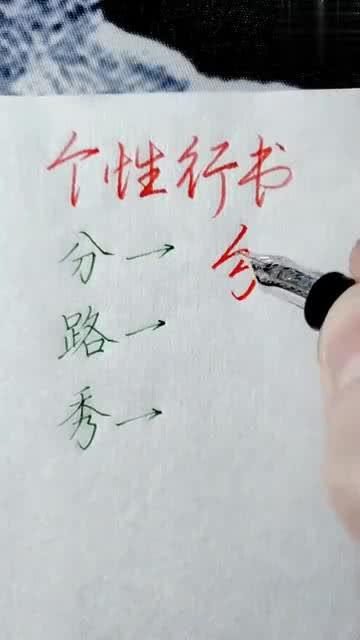 个性行书
分→ 分
路→
秀→